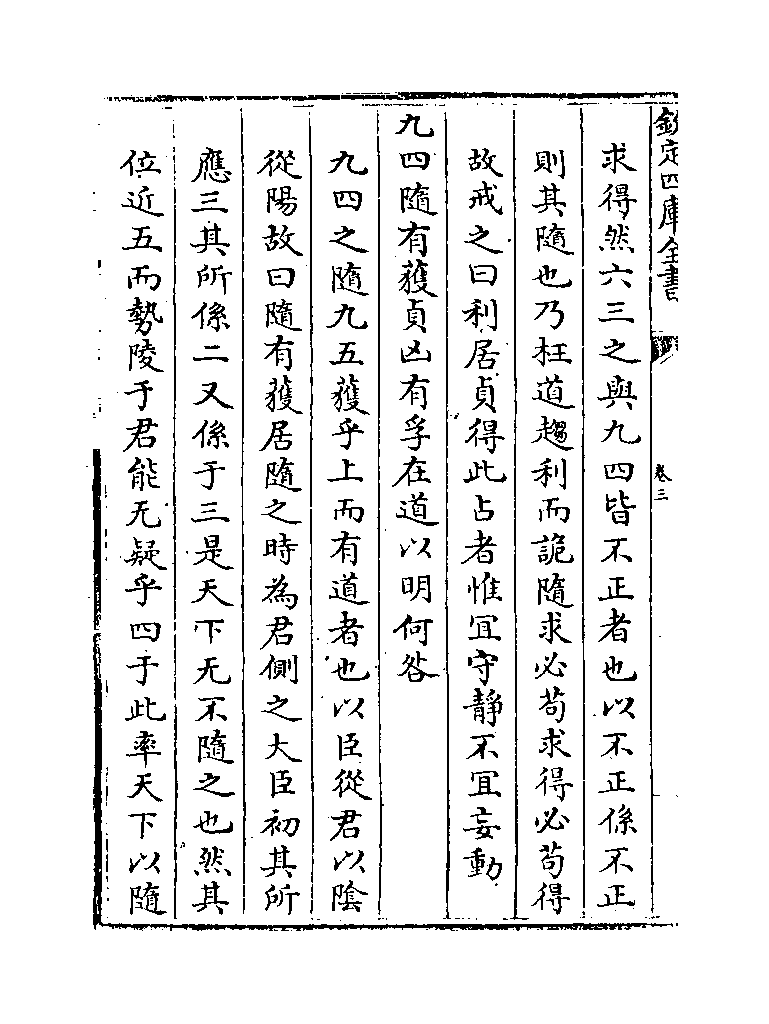 欽定四庫全書
卷三
求得然六三之與九四皆不正者也以不正係不正
則其隨也乃枉道趨利而詭隨求必苟求得必苟得
故戒之曰利居貞得此占者惟宜守靜不宜妄動
九四隨有獲貞凶有孚在道以明何咎
九四之隨九五獲乎上而有道者也以臣從君以陰
從陽故曰隨有獲居隨之時為君側之大臣初其所
應三其所係二又係于三是天下无不隨之也然其
位近五而勢陵于君能无疑乎四于此率天下以隨